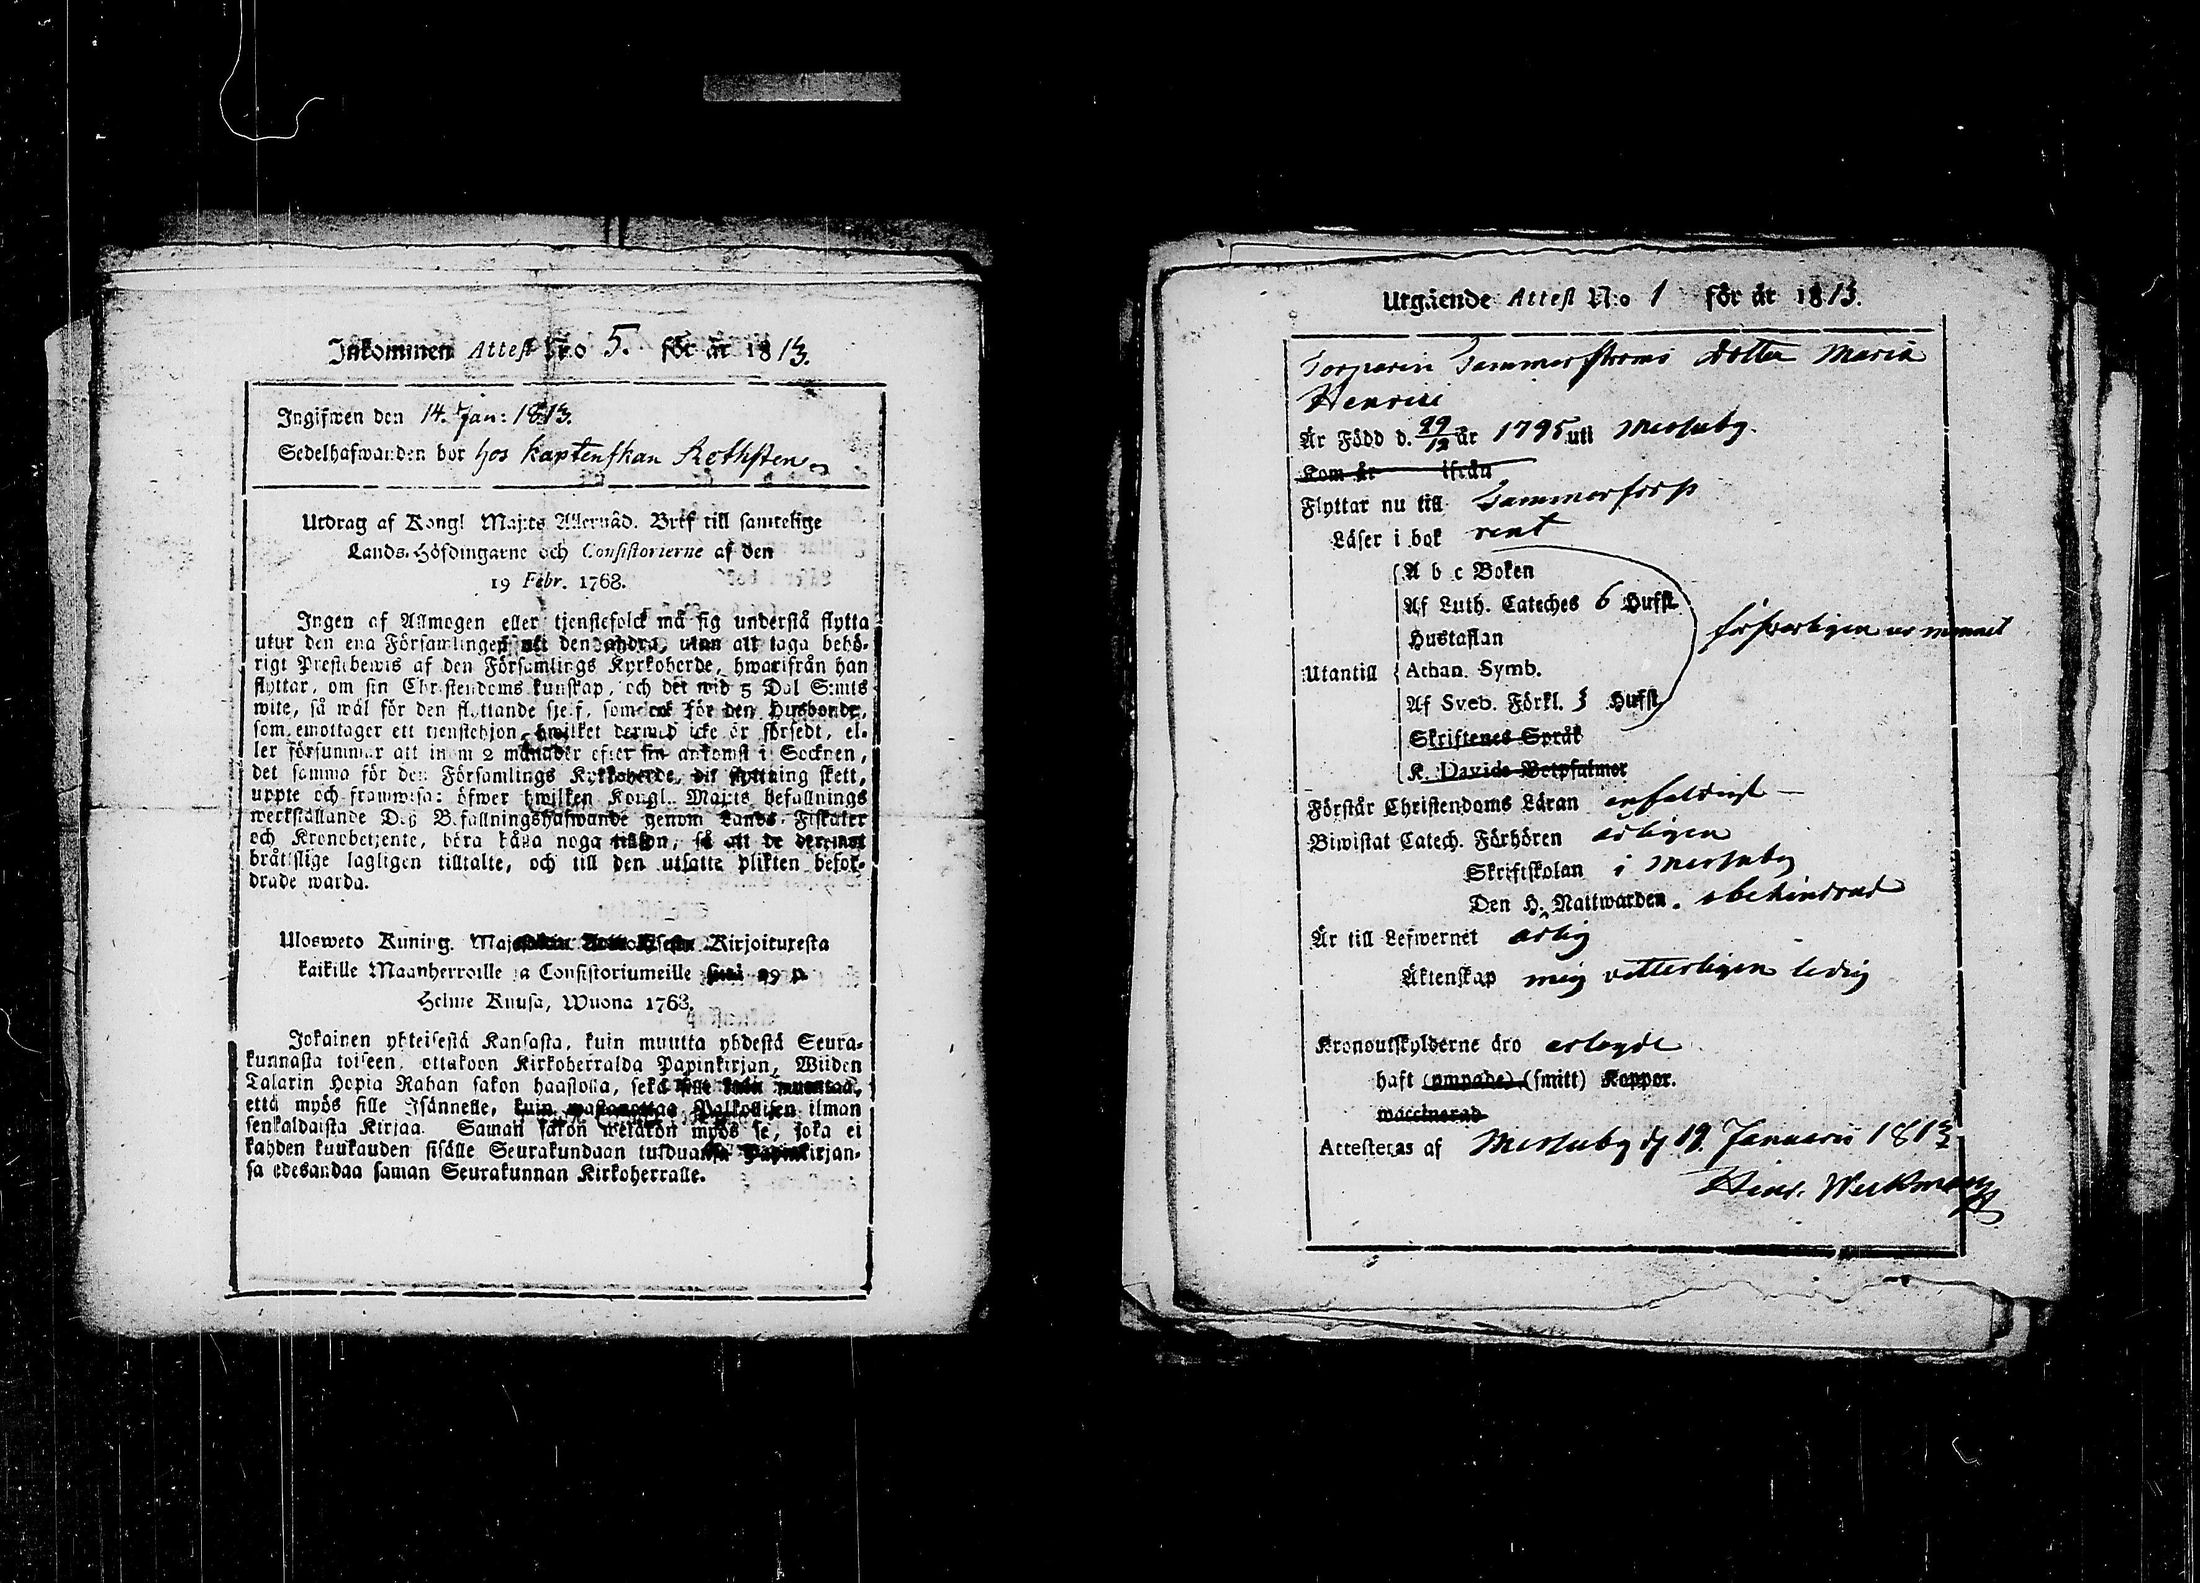 Inkommen Attest N:o 5. för år 1813.
Ingifwen den 14. Jan: 1813.
Sedelhafwanden bor hos Kaptenskan Rothsten
Utdrag af Kongl Maj:ts Allernåd. Bref till samtelige
Lands-Höfdingarne och Consistorierne af den
19 Febr. 1768.
Ingen af Allmogen eller tjenstefolck må sig understå flytta
utur den ena Församlingen uti den andra, utan att taga behö-
rigt Prestebewis af den Församlings Kyrkoherde, hwarifrån han
flyttar, om sin Christendoms kunskap, och det wid 5 Dal S:mts
wite, så wäl för den flyttande sjelf, som ock för den Husbonde,
som emottager ett tjenstehjon, hwilket dermed icke är försedt, el-
ler försummar att inom 2 månader efter sin ankomst i Socknen,
det samma för den Församlings Kyrkoherde, dit flyttning skett,
uppte och framwisa: öfwer hwilken Kongl. Maj:ts befallnings
werkställande Deß Befallningshafwande genom Lands-Fiskaler
och Kronobetjente, böra hålla noga tillsyn, så att de deremot
bråttslige lagligen tilltalte, och till den utsatte plikten befor-
drade warda.
Ulosweto Kuning. Majestetin Kirjoituxesta
kaikille Maanherroille ja Consistoriumeille 19 p.
Helme Kuusa, Wuona 1768.
Jokainen yhteisestä Kansasta, kuin muutta yhdestä Seura-
kunnasta toiseen, ottakoon Kirkoherralda Papinkirjan, Wiiden
Talarin Hopia Rahan sakon haastolla, sekä sille kuin muuttaa,
että myös sille Isännelle, kuin wastanottaa Palkollisen ilman
senkaldaista Kirjaa. Saman sakon wetäkön myös se, joka ei
kahden kuukauden sisälle Seurakundaan tulduansa Papinkirjan-
sa edesandaa saman Seurakunnan Kirkoherralle.
Utgående Attest N:o 1 för år 1813.
Torparen Tammerströms dotter Maria
Är Född d. 29/12 år 1795 uti Messuby.
Kom år ifrån
Flyttar nu till Tammerforss
Läser i bok rent
A b c Boken
Af Luth. Cateches 6 Hufst.
Hustaflan
Utantill Athan. Symb.
försvarligen ur minnet
Af Sveb. Förkl. 3 Hufst.
Skriftenes Språk
K. Davids Botpsalmer
Förstår Christendoms Läran enfaldigt
Biwistat Catech. Förhören ärligen
Skriftskolan i Messuby
Den H. Nattwarden. obehindrad
Är till Lefwernet ärlig
Äktenskap mig vetterligen ledig
Kronoutskylderne äro erlagde
haft (ympade) (smitt) Koppor.
waccinerad
Attesteras af Messuby d. 12. Januarii 1813
Henr. Werkman